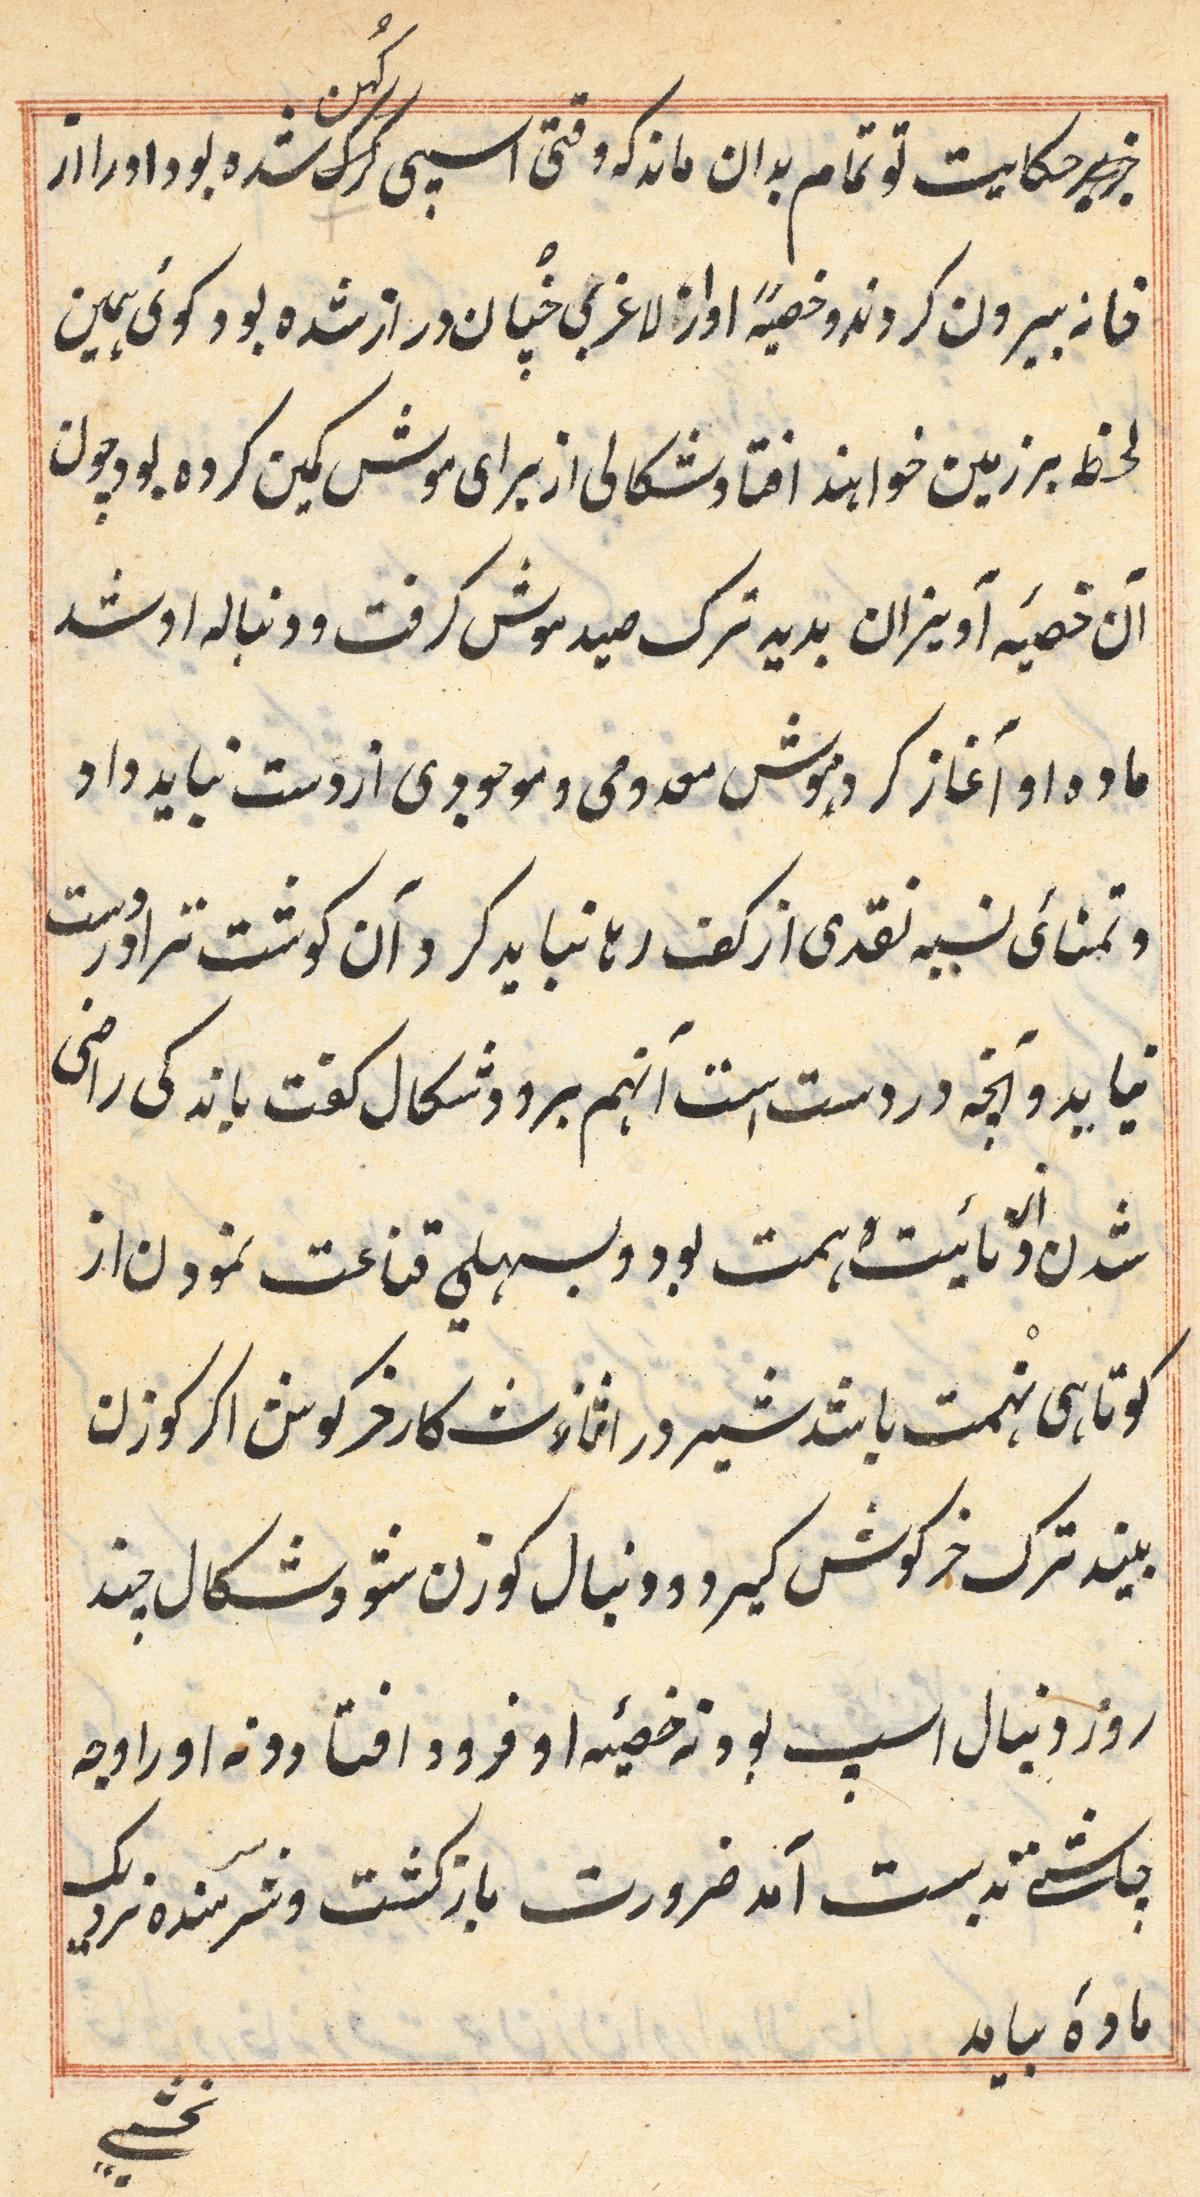 کُهن
حکایت تو تمام بدان ماند که وقتی اسپی کرک شده بود او را از
خانه بیرون کردند و خصیهٔ او از لاغری خپان دراز شده بود کوئی همین
لحظه بر زمین خواهند افتاد شکالی از برای موش کمین کرده بود چون
آن خصیهٔ آویزان بدید ترک صید موش کرفت و دنباله او شد
ماده او آغاز کرد بموش معدومی و موجودی از دست نباید داد
و تمنائی نسیه نقدی از کف رها نباید کرد و آن کوشت ترا در دست
نیاید و آنچه در دست است آنهم برود شکال کفت باندکی راضی
شدن از دنائیت همت بود و بسهلی قناعت نمودن از
کوتاهی نهمت باشد شیر در اثناء شکار خرکوش اکر کوزن
بیند ترک خرکوش کیرد و دنبال کوزن شود شکال چند
روز دنبال اسپ بود نه خصیهٔ او فرود افتاد و نه او را وجه
چاشتی بدست آمد ضرورت بازکشت و شرمنده نزدیک
مادهٔ بیاید
نخشبی